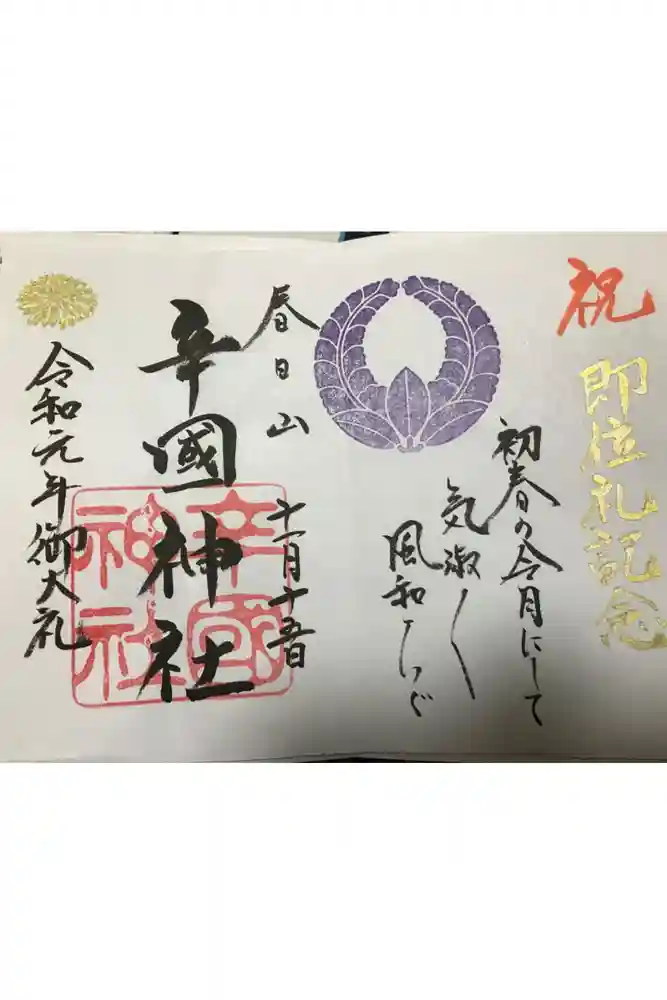 祝
即位礼記念
初春の令月にして
気淑く
風和らぐ
春日山
十一月十五日
辛國神社
辛國
神社
令和元年御大礼